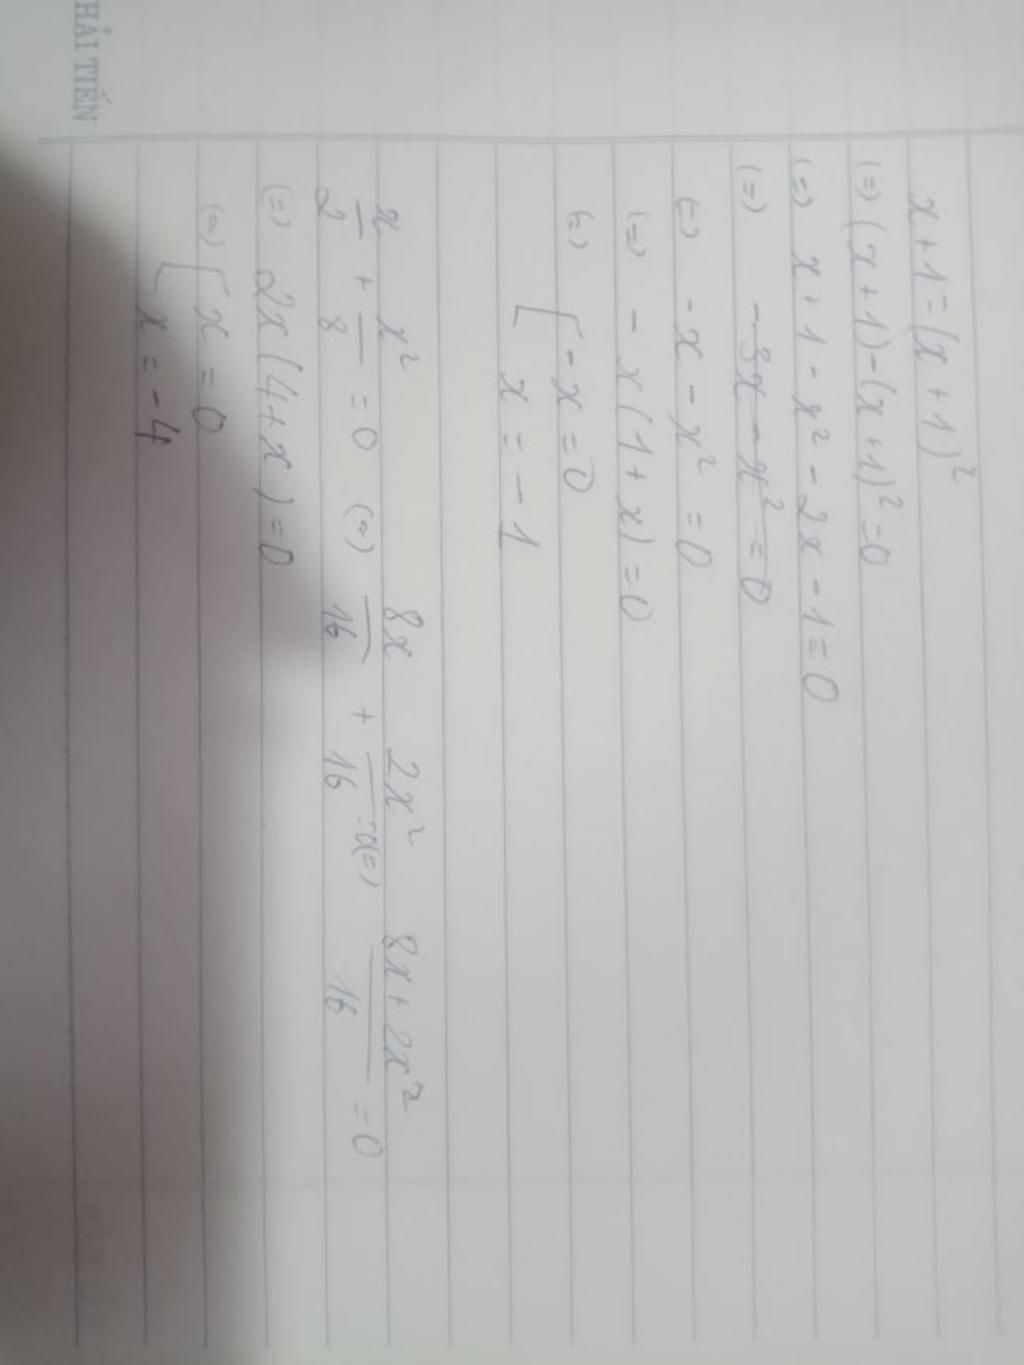 HẢI TIẾN
x+1=(x+1)²
(=) (x+1)-(x+1)²=0
(=) x+1-x²-2x-1=0
(=) -3x-x²=0
(=) -x-x²=0
(=) -x(1+x)=0
(=) [-x=0
x=-1
x/2 + x²/8 = 0 (=) 8x/16 + 2x²/16 =0(=) 8x+2x²/16 =0
(=) 2x(4+x)=0
(=) [x=0
x=-4